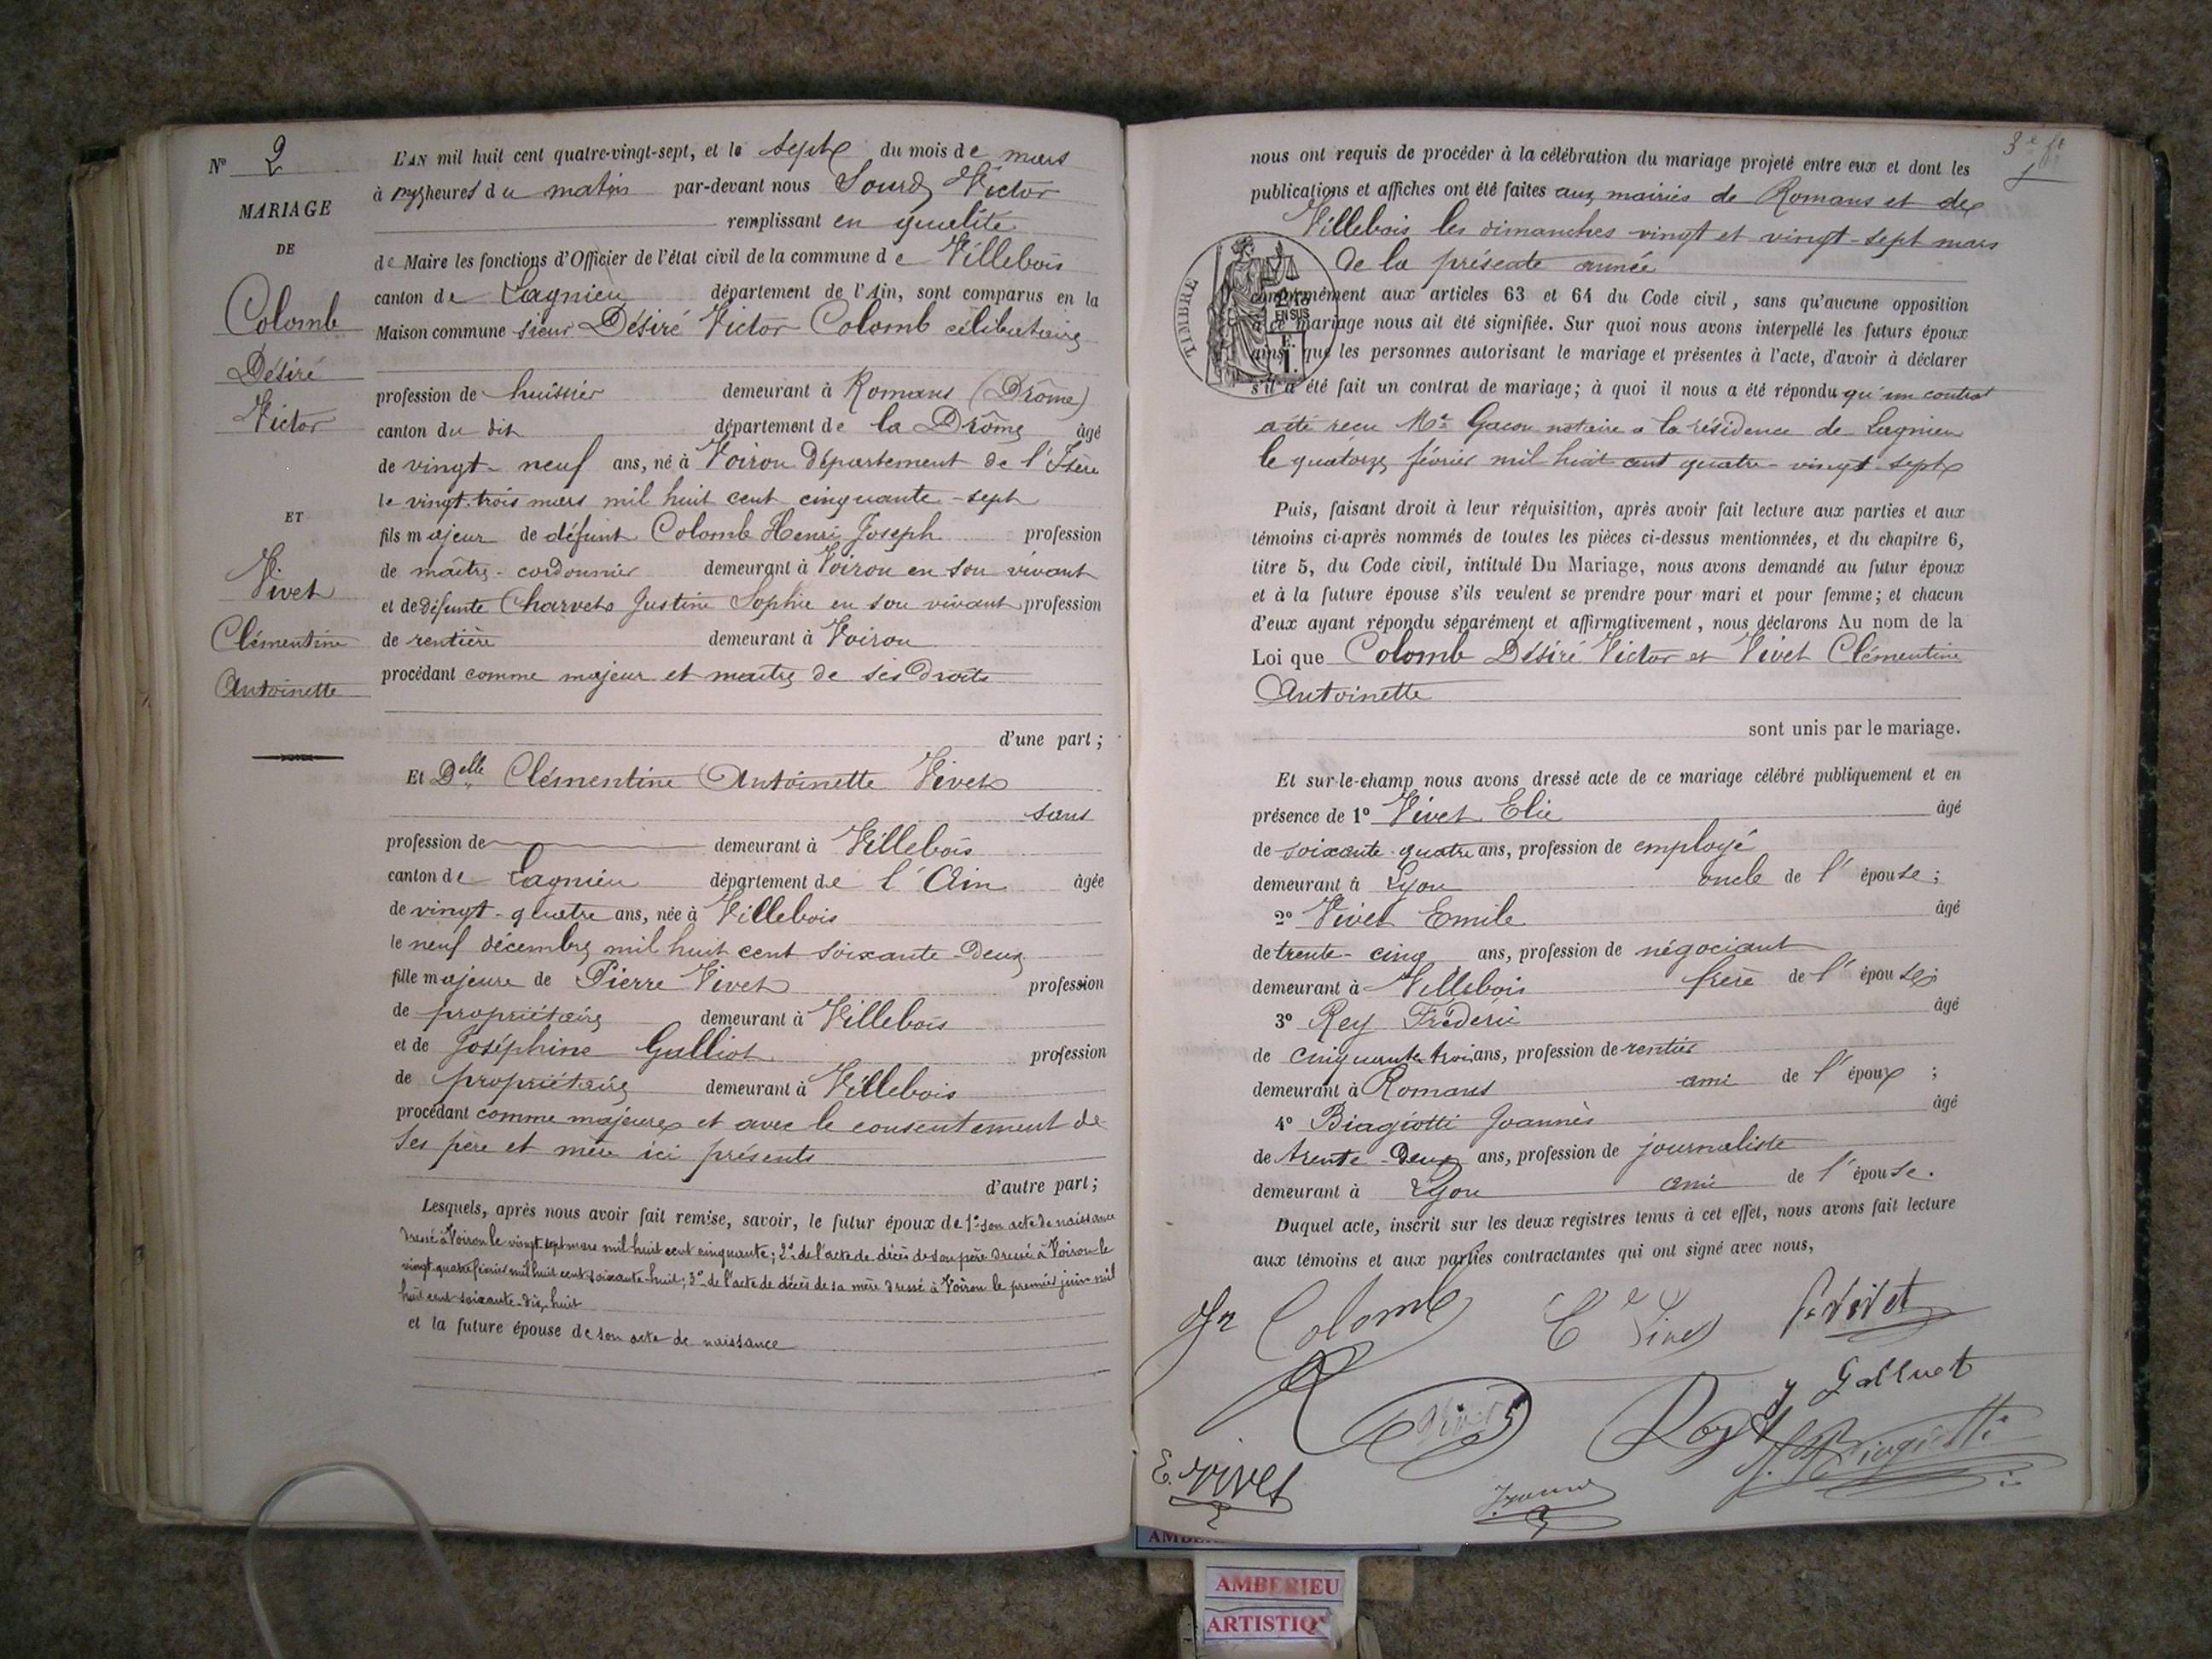 N° 2
MARIAGE
DE
Colomb
Désiré
Victor
ET
Vivet
Clémentine
Antoinette
L'AN mil huit cent quatre-vingt-sept, et le sept du mois de mars
à heures du matin par-devant nous Sourd Victor
remplissant en qualité
de Maire les fonctions d'Officier de l'état civil de la commune de Villebois
canton de Lagnieu département de l'Ain, sont comparus en la
Maison commune sieur Désiré Victor Colomb célibataire
profession de huissier demeurant à Romans (Drôme)
canton du dit département de la Drôme âgé
de vingt-neuf ans, né à Voiron département de l'Isère
le vingt-trois mars mil huit cent cinquante-sept
fils majeur de défunt Colomb Henri Joseph profession
de maître-cordonnier demeurant à Voiron en son vivant
et de défunte Charvet Justine Sophie en son vivant profession
de rentière demeurant à Voiron
procédant comme majeur et maître de ses droits
d'une part;
Et Delle Clémentine Antoinette Vivet
sans
profession de demeurant à Villebois
canton de Lagnieu département de l'Ain âgée
de vingt-quatre ans, née à Villebois
le neuf décembre mil huit cent soixante-deux
fille majeure de Pierre Vivet profession
de propriétaire demeurant à Villebois
et de Joséphine profession
de propriétaire demeurant à Villebois
procédant comme majeure et avec le consentement de
ses père et mère ici présents
d'autre part;
Lesquels, après nous avoir fait remise, savoir, le futur époux de 1° son acte de naissance
dressé à Voiron le vingt-sept mars mil huit cent cinquante; 2° de l'acte de décès de son père dressé à Voiron le
vingt-quatre février mil huit cent soixante-huit; 3° de l'acte de décès de sa mère dressé à Voiron le premier juin mil
huit cent soixante-dix huit
et la future épouse de son acte de naissance
nous ont requis de procéder à la célébration du mariage projeté entre eux et dont les
publications et affiches ont été faites aux mairies de Romans et de
Villebois les dimanches vingt et vingt-sept mars
de la présente année
conformément aux articles 63 et 64 du Code civil, sans qu'aucune opposition
à ce mariage nous ait été signifiée. Sur quoi nous avons interpellé les futurs époux
ainsi que les personnes autorisant le mariage et présentes à l'acte, d'avoir à déclarer
s'il a été fait un contrat de mariage; à quoi il nous a été répondu qu'un contrat
a été reçu Me Gacon notaire a la résidence de Lagnieu
le quatorze février mil huit cent quatre-vingt-sept
TIMBRE
EN SUS
Puis, faisant droit à leur réquisition, après avoir fait lecture aux parties et aux
témoins ci-après nommés de toutes les pièces ci-dessus mentionnées, et du chapitre 6,
titre 5, du Code civil, intitulé Du Mariage, nous avons demandé au futur époux
et à la future épouse s'ils veulent se prendre pour mari et pour femme; et chacun
d'eux ayant répondu séparément et affirmativement, nous déclarons Au nom de la
Loi que Colomb Désiré Victor et Vivet Clémentine
Antoinette
sont unis par le mariage.
Et sur-le-champ nous avons dressé acte de ce mariage célébré publiquement et en
présence de 1° Vivet Elie âgé
de soixante-quatre ans, profession de employé
demeurant à Lyon oncle de l'épouse;
2° Vivet Emile âgé
de trente-cinq ans, profession de négociant
demeurant à Villebois frère de l'épouse;
3° Rey Fréderic âgé
de cinquante trois ans, profession de rentier
demeurant à Romans ami de l'époux;
4° Biagiotti Joannès âgé
de trente-deux ans, profession de journaliste
demeurant à Lyon ami de l'épouse.
Duquel acte, inscrit sur les deux registres tenus à cet effet, nous avons fait lecture
aux témoins et aux parties contractantes qui ont signé avec nous,
Colomb
Vivet
E. Vivet
Biagiotti
AMBERIEU
ARTISTIQ